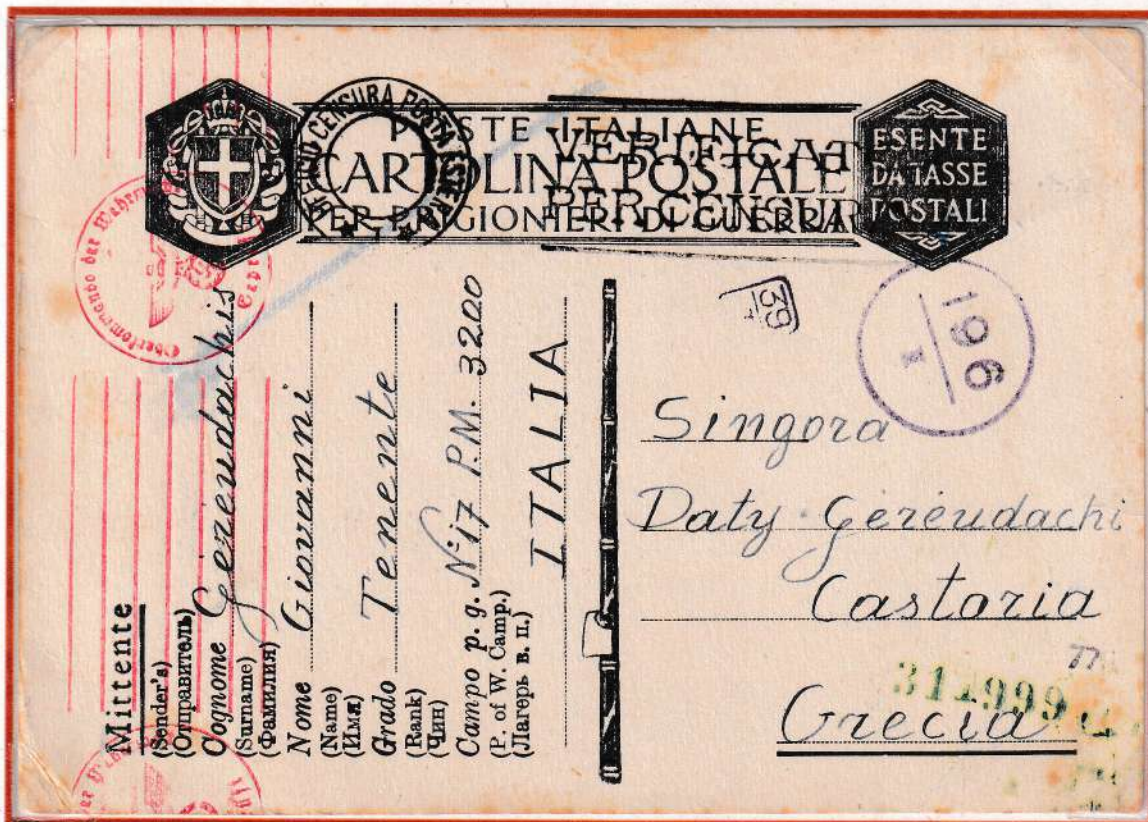 POSTE ITALIANE
CARTOLINA POSTALE
PER PRIGIONIERI DI GUERRA
ESENTE
DA TASSE
POSTALI
CENSURA POSTA ESTERA
PER CENSURA
Oberkommando der Wehrmacht
39
196
Mittente
(Sender's)
(Отправитель)
Cognome Gerendachis
(Surname)
(Фамилия)
Nome Giovanni
(Name)
(Имя)
Grado Tenente
(Rank)
(Чин)
Campo p. g. N: 17 P.M. 3200
(P. of W. Camp.)
(Лагерь в. п.)
ITALIA
Singora
Daty Geréudachi
Castoria
311999
Grecia